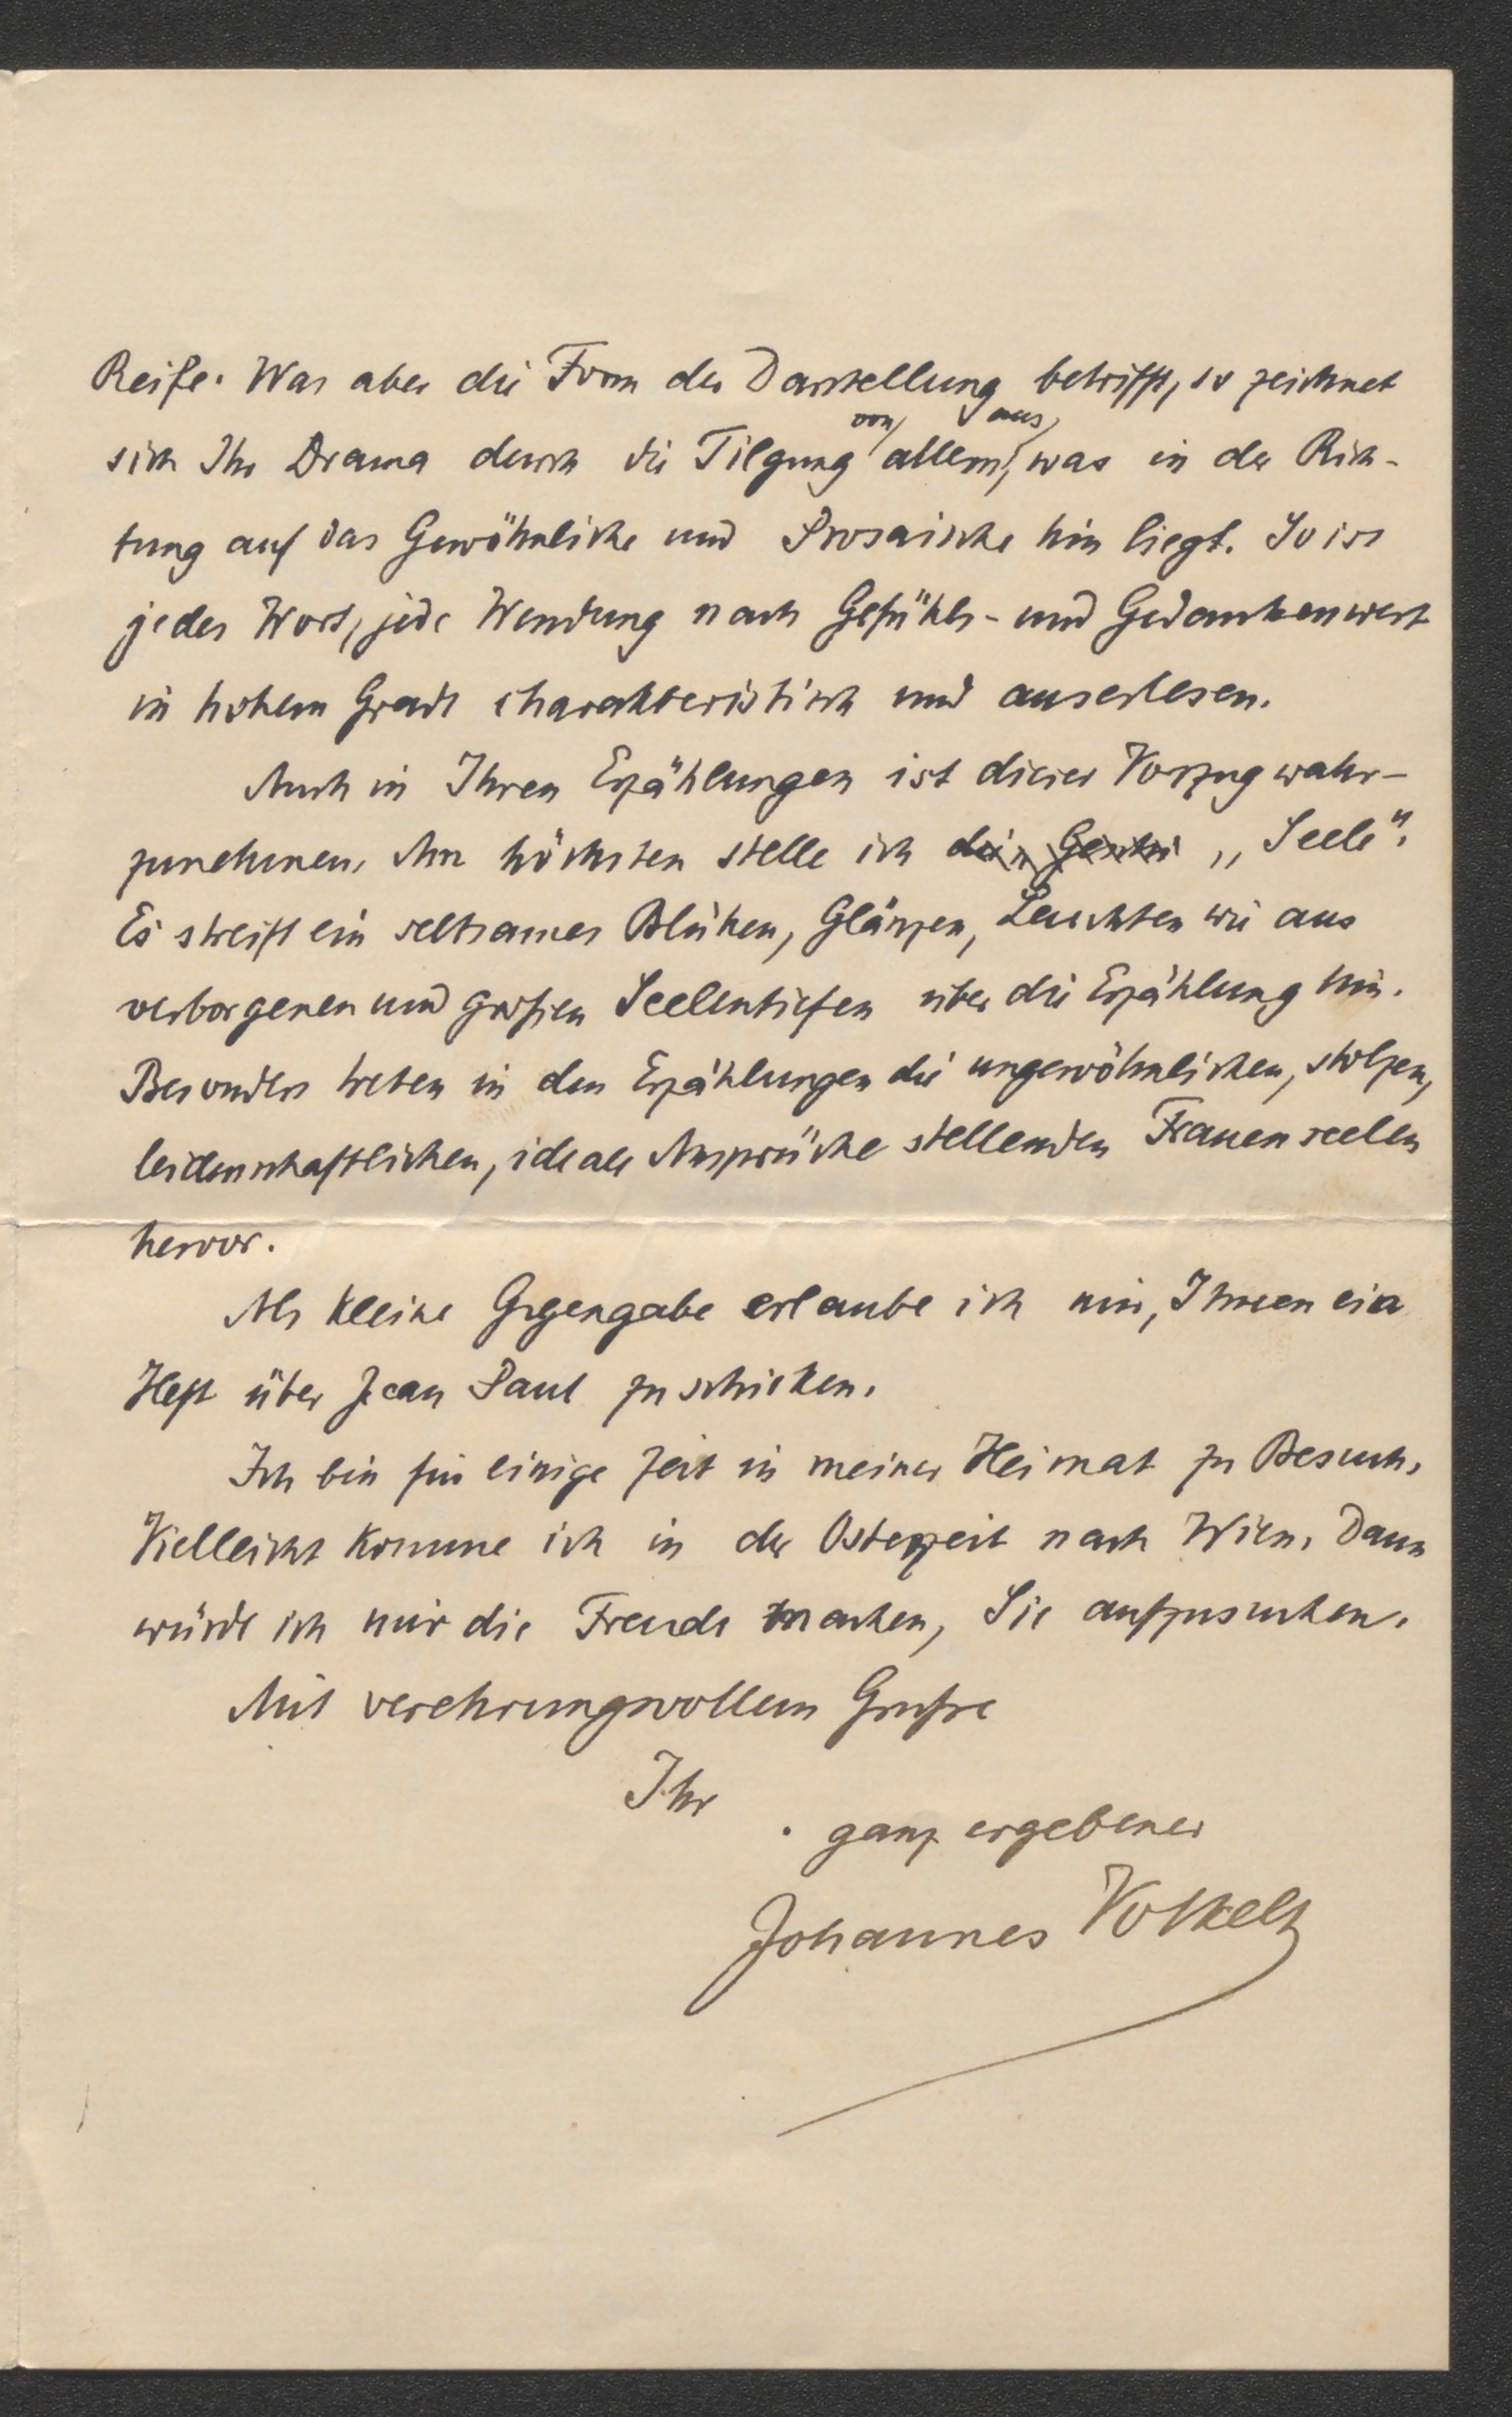 Reife. Was aber die Form der Darstellung betrifft, so zeichnet
sich Ihr Drama durch die Tilgung von allem aus, was in der Rich-
tung auf das Gewöhnliche und Prosaische hin liegt. So ist
jedes Wort, jede Wendung nach Gefühls- und Gedankenwert
in hohem Grade charakteristisch und auserlesen.
Auch in Ihren Erzählungen ist dieser Vorzug wahr-
zunehmen. Am höchsten stelle ich „Seele".
Es streift ein seltsames Blühen, Glänzen, Leuchten wie aus
verborgenen und großen Seelentiefen über die Erzählung hin.
Besonders treten in den Erzählungen die ungewöhnlichen, stolzen,
leidenschaftlichen, ideale Ansprüche stellenden Frauenseelen
hervor.
Als kleine Gegengabe erlaube ich mir, Ihnen ein
Heft über Jean Paul zu schicken.
Ich bin für einige Zeit in meiner Heimat zu Besuch.
Vielleicht komme ich in der Osterzeit nach Wien. Dann
würde ich mir die Freude machen, Sie aufzusuchen.
Mit verehrungsvollem Gruße
Ihr
ganz ergebener
Johannes Volkelt